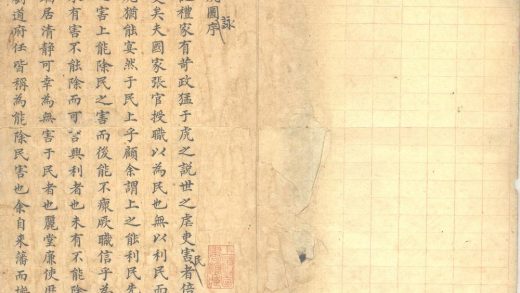 圖詠序
禮家有苛政猛于虎之說世之虐吏害民者倍
矣夫國家張官授職以為民也無以利民而
猶能宴然于民上乎顧余謂上之能利民先
之害上能除民之害而後能不瘝厥職信乎為
有害不能除而可言興利者也未有不能除
居清静可幸為無害于民者也麗堂廉使歷
道府任皆稱為能除民害也余自来藩而